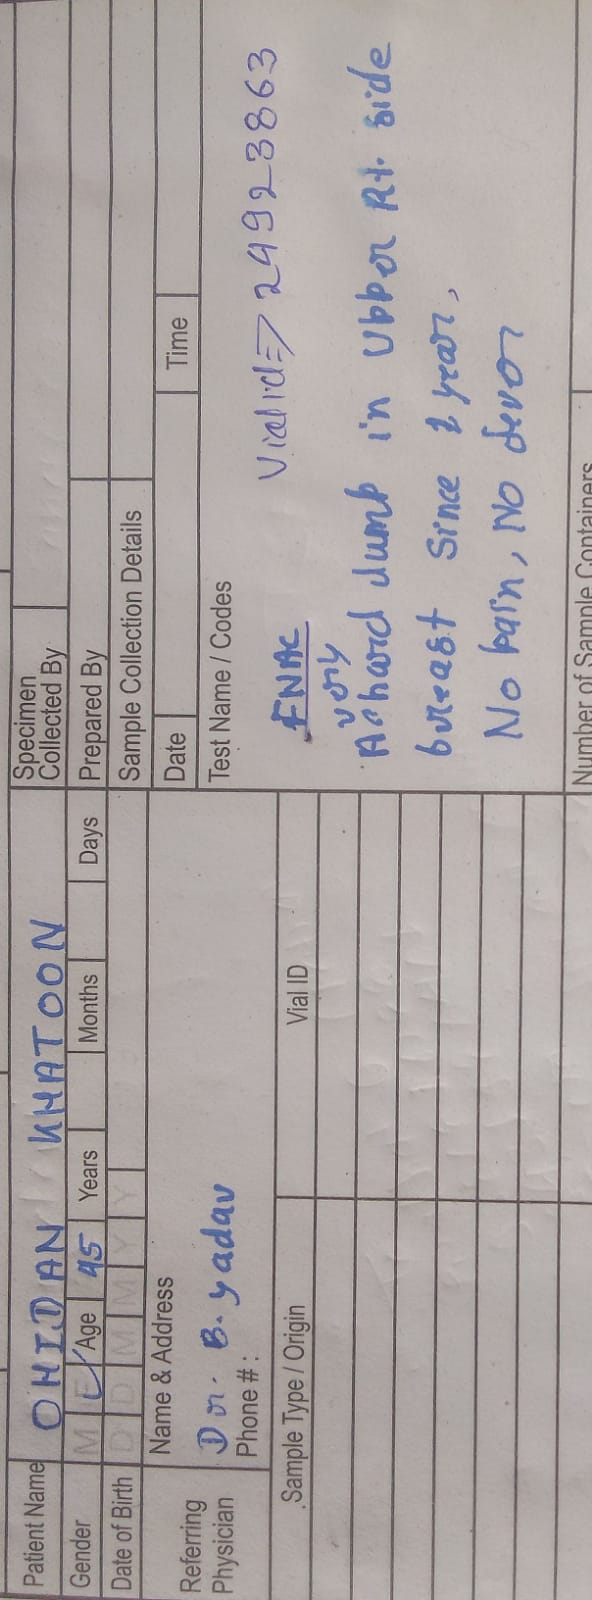 Patient Name OHIDAN KHATOON
Gender M F Age 45 Years Months Days
Date of Birth D D M M Y Y
Referring Physician
Name & Address
Dr. B. yadav
Phone # :
Sample Type / Origin Vial ID
Specimen Collected By
Prepared By
Sample Collection Details
Date Time
Test Name / Codes
Vial id => 24923863
FNAC
very
A hard lump in Upper Rt. side
breast since 1 year,
No pain, No fever
Number of Sample Containers